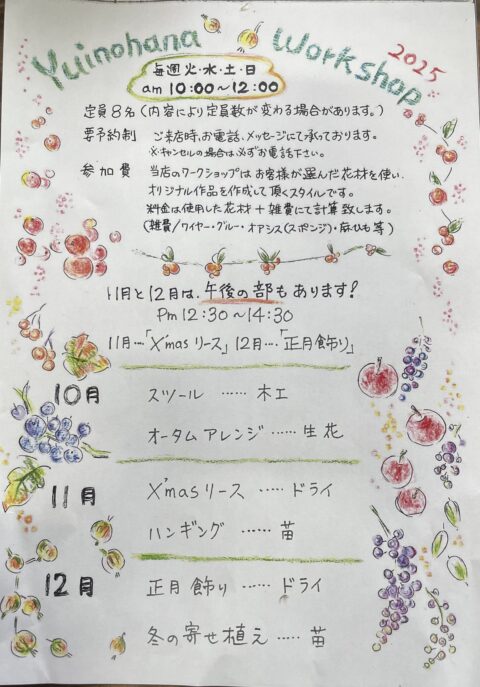 Yuinohana Workshop 2025
毎週火・水・土・日
am 10:00～12:00
定員8名(内容により定員数が変わる場合があります。)
要予約制 ご来店時、お電話、メッセージにて承っております。
※キャンセルの場合は必ずお電話下さい。
参加費 当店のワークショップはお客様が選んだ花材を使い、
オリジナル作品を作成して頂くスタイルです。
料金は使用した花材+雑費にて計算致します。
(雑費/ワイヤー・グルー・オアシス(スポンジ)・麻ひも等)
11月と12月は、午後の部もあります!
Pm 12:30～14:30
11月…「X'masリース」 12月…「正月飾り」
10月 スツール …… 木工
オータムアレンジ …… 生花
11月 X'masリース …… ドライ
ハンギング …… 苗
12月 正月飾り …… ドライ
冬の寄せ植え …… 苗